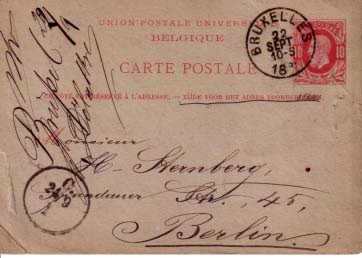 UNION POSTALE UNIVERSELLE
BELGIQUE
CARTE POSTALE
CÔTÉ RÉSERVÉ À L'ADRESSE. — ZIJDE VOOR HET ADRES VOORBEHOUDEN.
BRUXELLES
22
SEPT
10-S
18
10 10
Brüssel 22/9
Monsieur
H. Sternberg,
Str., 45,
Berlin.